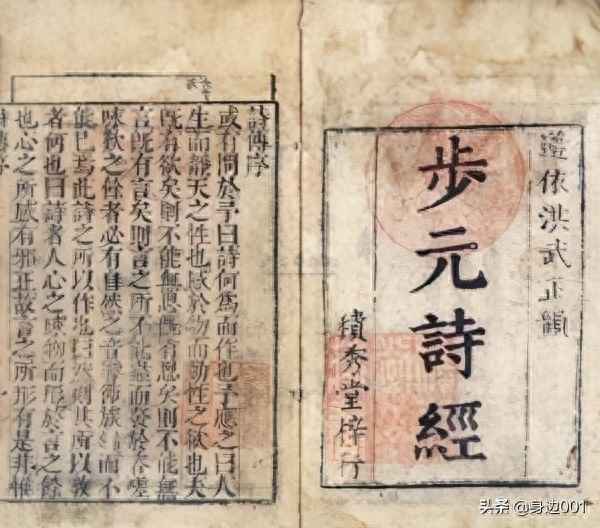 遵依洪武正韻
步元詩經
積秀堂梓行
詩傳序
或有問於予曰詩何爲而作也予應之曰人
生而靜天之性也感於物而動性之欲也夫
既有欲矣則不能無思既有思矣則不能無
言既有言矣則言之所不能盡而發於咨嗟
咏歎之餘者必有自然之音響節族而不
能已焉此詩之所以作也曰然則其所以敎
者何也曰詩者人心之感物而形於言之餘
也心之所感有邪正故言之所形有是非惟
詩傳序
头条 @身边001